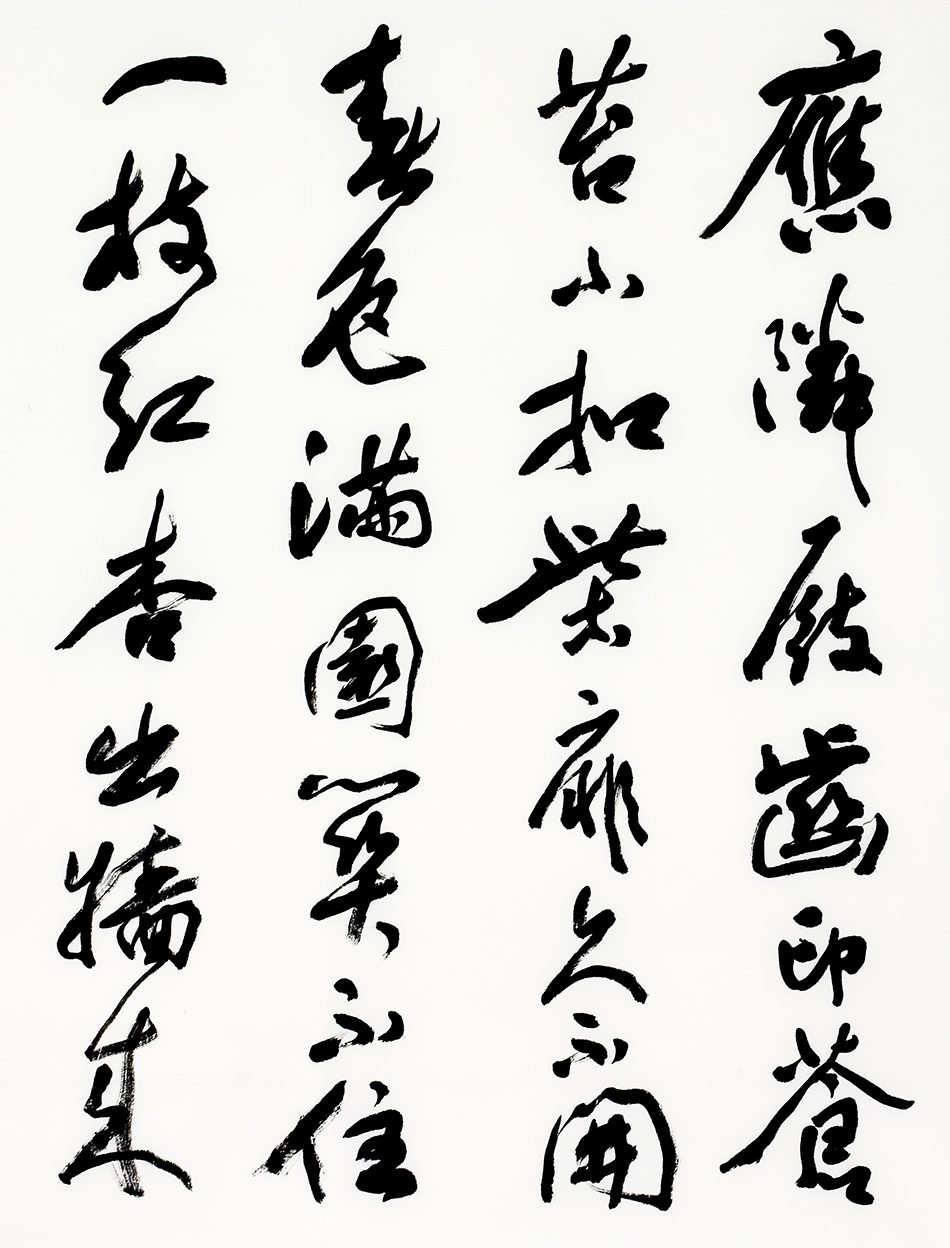 應憐屐齒印蒼
苔小扣柴扉久不開
春色滿園關不住
一枝紅杏出牆來